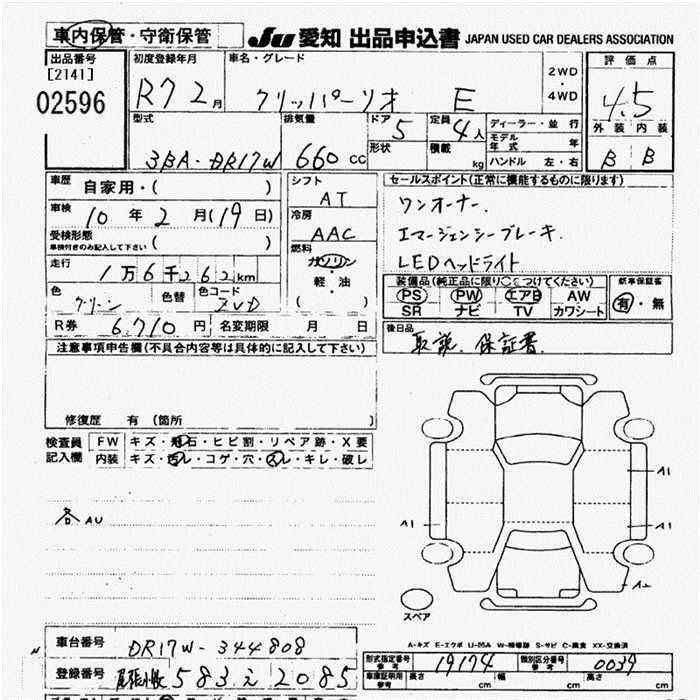 車内保管・守衛保管
JU 愛知 出品申込書 JAPAN USED CAR DEALERS ASSOCIATION
出品番号 [2141] 02596
初度登録年月 R7 2月
車名・グレード クリッパーリオ E
2WD 4WD
評価点 4.5
外装 内装 B B
型式 3BA-DR17W
排気量 660cc
ドア 5
形状
定員 4人
積載 kg
ディーラー・並行
モデル年式 年
ハンドル 左・右
車歴 自家用・( )
車検 10年2月(19日)
受検形態 ( )
車検付きのみ記入して下さい
走行 1万6千262km
色 グリーン 色替 色コード
R券 6,710円 名変期限 月 日
シフト AT
冷房 AAC
燃料 ガソリン
軽・油
( )
セールスポイント(正常に機能するものに限ります)
ワンオーナー.
エマージェンシーブレーキ.
LEDヘッドライト
装備品(純正品に限り○をつけてください)
PS PW エアB AW
SR ナビ TV カワシート
新車保証書 有・無
後日品 取説、保証書.
注意事項申告欄(不具合内容等は具体的に記入して下さい)
修復歴 有(箇所 )
検査員記入欄
FW キズ・飛石・ヒビ割・リペア跡・X要
内装 キズ・汚レ・コゲ・穴・スレ・キレ・破レ
各AU
A1
A1
A1
A2
スペア
A-キズ E-エクボ U-凹み W-補修跡 S-サビ C-腐食 XX-交換済
車台番号 DR17W-344808
登録番号 尾張小牧 583 え 2085
型式指定番号 参考 19174
類別区分番号 参考 0039
車庫証明用 参考 長さ cm 幅 cm 高さ cm